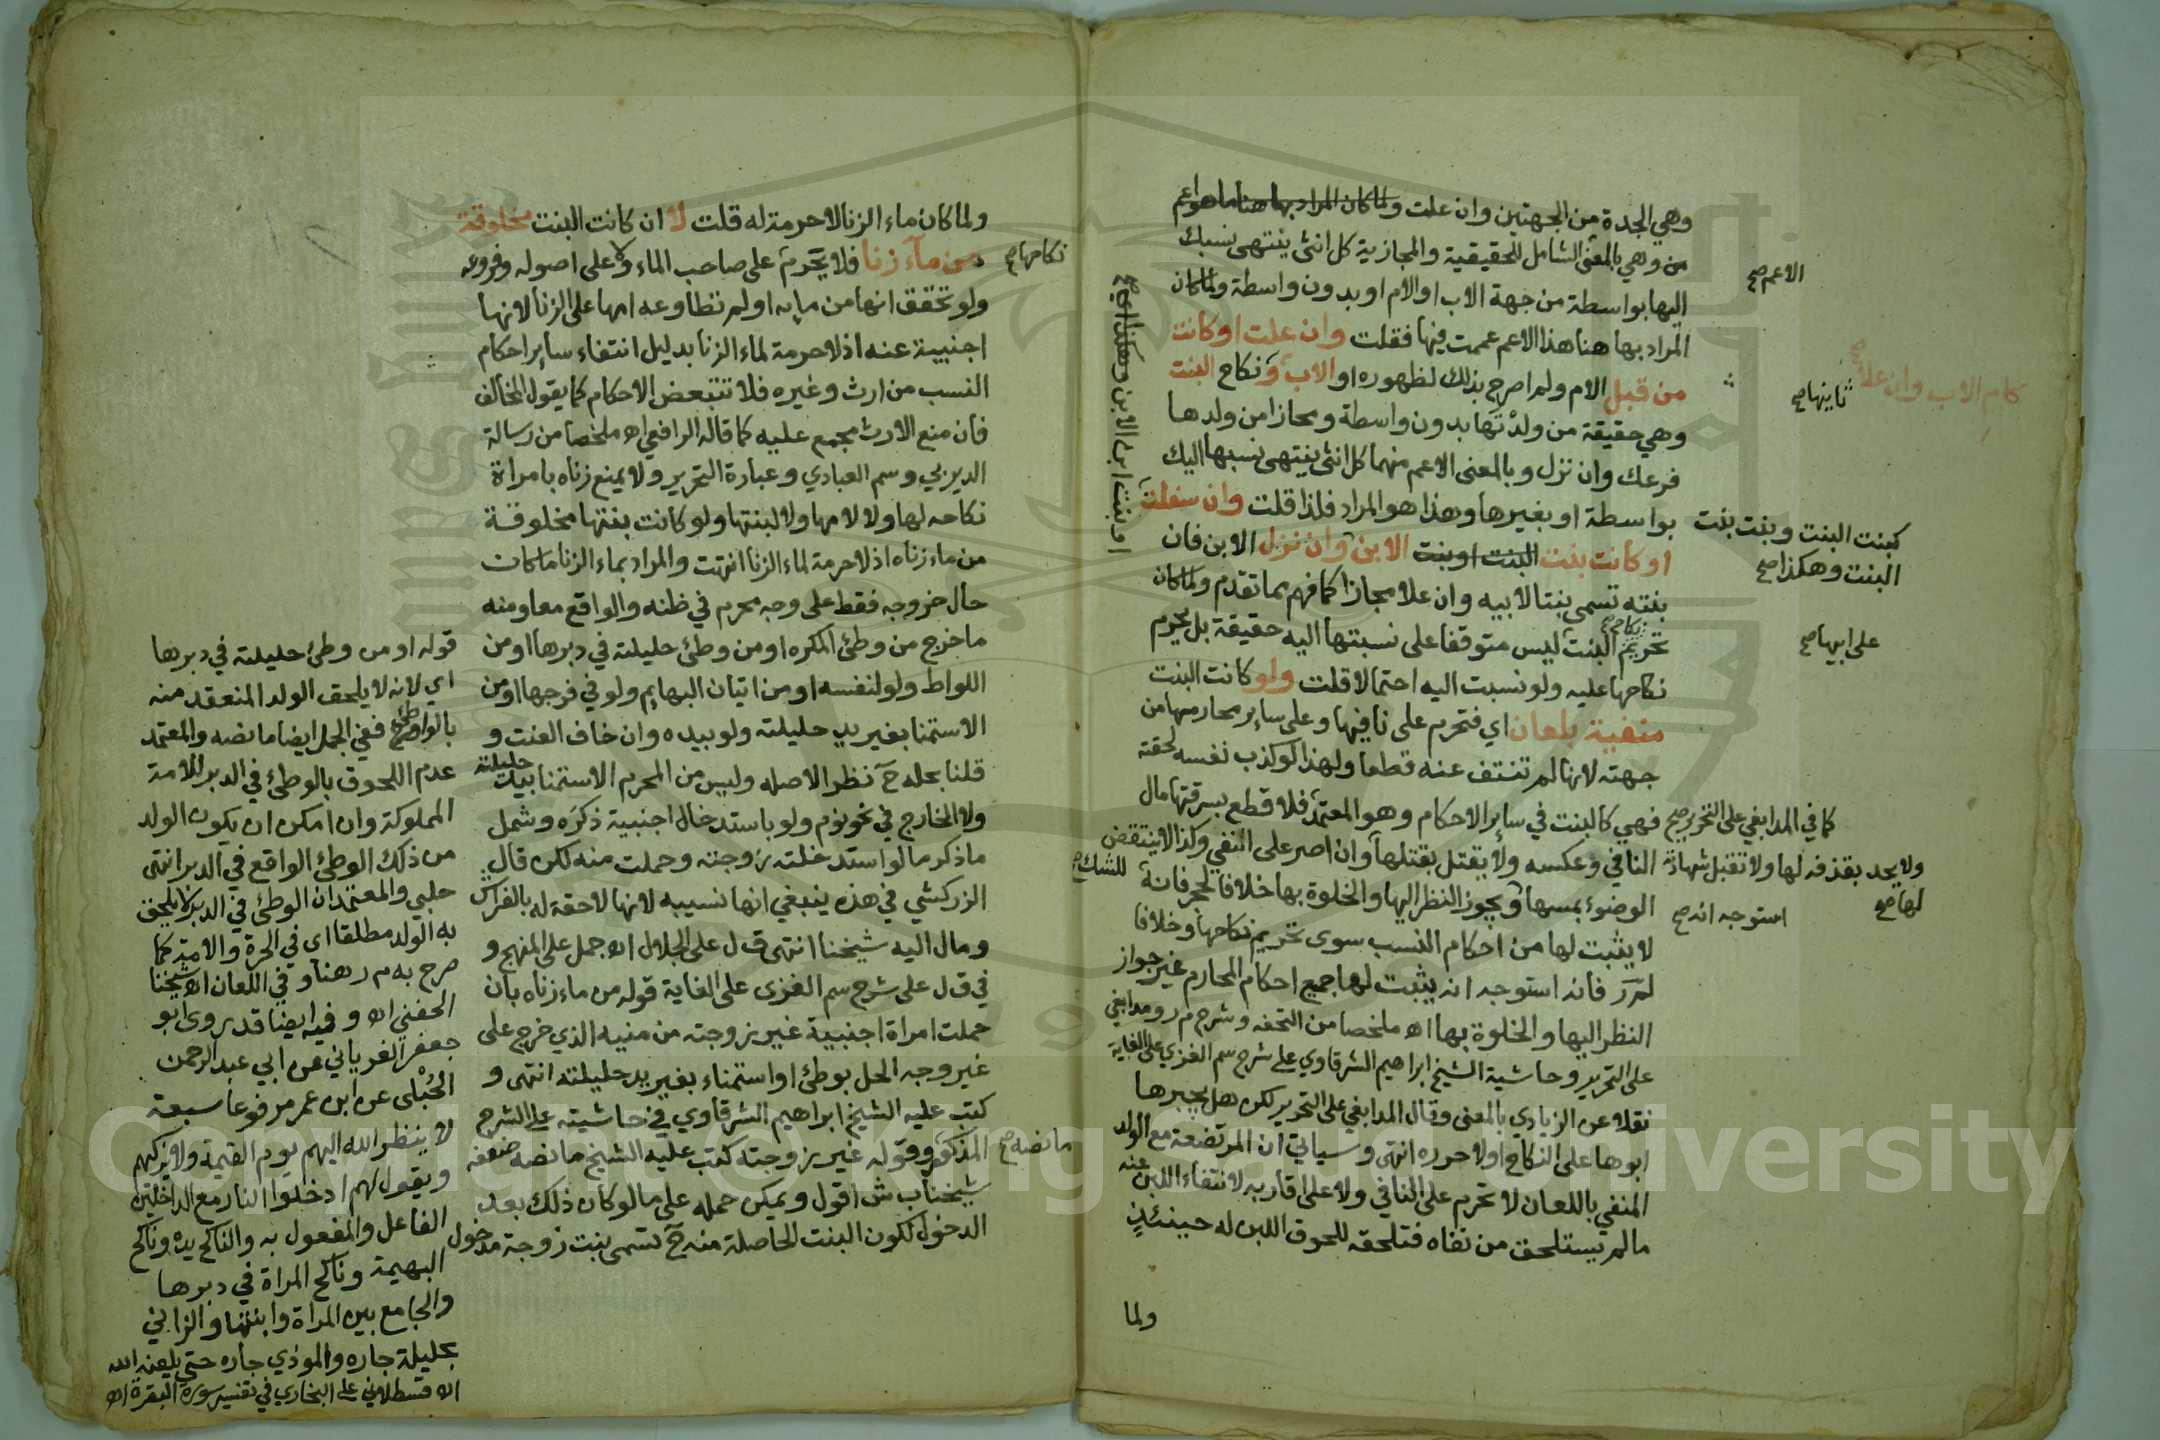 وهي الجدة من الجهتين وان علت ولما كان المراد بها هنا ما هو اعم
من وهي بالمعنى الشامل للحقيقية والمجازية كل انثى ينتهى نسبك
اليها بواسطة من جهة الاب او الام او بدون واسطة ولما كان
المراد بها هنا هذا الاعم عممت فيها فقلت وان علت او كانت
من قبل الام ولم اصرح بذلك لظهوره او الاب و نكاح البنت
وهي حقيقة من ولدتها بدون واسطة ومجازا من ولدها
فرعك وان نزل وبالمعنى الاعم منهما كل انثى ينتهى نسبها اليك
بواسطة او بغيرها وهذا هو المراد فلذا قلت وان سفلت
او كانت بنت البنت او بنت الابن وان نزل الابن فان
بنته تسمى بنتا لابيه وان علا مجازا كما فهم مما تقدم ولما كان
تحريم نكاح البنت ليس متوقفا على نسبتها اليه حقيقة بل يحرم
نكاحها عليه ولو نسبت اليه احتمالا قلت ولو كانت البنت
منفية بلعان اي فتحرم على نافيها وعلى ساير محارمها من
جهته لانها لم تنتف عنه قطعا ولهذا لو كذب نفسه لحقته
فهي كالبنت في ساير الاحكام وهو المعتمد فلا قطع بسرقتها مال
النافي وعكسه ولا يقتل بقتلها وان اصر على النفي وكذا لا ينتقض
الوضوء بمسها ويجوز النظر اليها والخلوة بها خلافا لحجر فانه
لا يثبت لها من احكام النسب سوى تحريم نكاحها وخلافا
لمر فانه استوجه انه يثبت لها جميع احكام المحارم غير جواز
النظر اليها والخلوة بها اه ملخصا من التحفه وشرح م ر ومدابغي
على التحرير وحاشية الشيخ ابراهيم الشرقاوي على شرح سم الغزي على الغاية
نقلا عن الزيادي بالمعنى وقال المدابغي على التحرير لكن هل يجبرها
ابوها على النكاح اولا حرره انتهى وسياتي ان المرتضعة مع الولد
المنفي باللعان لا تحرم على النافي ولا على اقاربه لانتفاء اللبن عنه
ما لم يستلحق من نفاه فتلحقه للحوق اللبن له حينئذ
ولما
الاعم صح
كام الاب وان علا صح
ثانيها صح
كبنت البنت وبنت بنت
البنت وهكذا صح
على ابيها صح
كما في المدابغي على التحرير صح
ولا يحد بقذفه لها ولا تقبل شهادة
لها صح
استوجه انه صح
للشك صح
او بنت ابن الابن وهكذا اي صح
ولما كان ماء الزنا لا حرمة له قلت لا ان كانت البنت مخلوقة
من مآء زنا فلا يحرم على صاحب الماء ولا على اصوله وفروعه
نكاحها صح
ولو تحقق انها من مايه او لم تطاوعه امها على الزنا لانها
اجنبية عنه اذ لا حرمة لماء الزنا بدليل انتفاء ساير احكام
النسب من ارث وغيره فلا تتبعض الاحكام كما يقول المخالف
فان منع الارث مجمع عليه كما قاله الرافعي اه ملخصا من رسالة
الديربي وسم العبادي وعبارة التحرير ولا يمنع زناه بامراة
نكاحه لها ولا لامها ولا لبنتها ولو كانت بنتها مخلوقة
من ماء زناه اذ لا حرمة لماء الزنا انتهت والمراد بماء الزنا ما كان
حال خروجه فقط على وجه محرم في ظنه والواقع معا ومنه
ما خرج من وطئ المكره او من وطئ حليلته في دبرها او من
اللواط ولو لنفسه او من اتيان البهايم ولو في فرجها او من
الاستمنا بغير يد حليلته ولو بيده وان خاف العنت و
قلنا بحله ح نظرا لاصله وليس من المحرم الاستمنا بيد حليلته
ولا الخارج في نحو نوم ولو باستدخال اجنبية ذكره وشمل
ما ذكر ما لو استدخلته زوجته وحملت منه لكن قال
الزركشي في هذه ينبغي انها نسيبه لانها لاحقة له بالفراش
ومال اليه شيخنا انتهى ق ل على الجلال اه جمل على المنهج و
في ق ل على شرح سم الغزى على الغاية قوله من ماء زناه بان
حملت امراة اجنبية غير زوجته من منيه الذي خرج على
غير وجه الحل بوطئ او استمناء بغير يد حليلته انتهى و
كتب عليه الشيخ ابراهيم الشرقاوي في حاشيته على الشرح
المذكور وقوله غير زوجته كتب عليه الشيخ ما نصه ضعفه
ما نصه صح
شيخنا ب ش اقول ويمكن حمله على ما لو كان ذلك بعد
الدخول لكون البنت الحاصلة منه ح تسمى بنت زوجة مدخول
قوله او من وطئ حليلته في دبرها
اي لانه لا يلحق الولد المنعقد منه
بالواطئ صح ففي الجمل ايضا ما نصه والمعتمد
عدم اللحوق بالوطئ في الدبر للامة
المملوكة وان امكن ان يكون الولد
من ذلك الوطئ الواقع في الدبر انتهى
حلبي والمعتمد ان الوطئ في الدبر لا يلحق
به الولد مطلقا اى في الحرة والامة كما
صرح به م ر هنا وفي اللعان اه شيخنا
الحفني اه وفيه ايضا قد روى ابو
جعفر الفرياني عن ابي عبد الرحمن
الحُبْلى عن ابن عمر مرفوعا سبعة
لا ينظر الله اليهم يوم القيمة ولا يزكيهم
ويقول لهم ادخلوا النار مع الداخلين
الفاعل والمفعول به والناكح يده وناكح
البهيمة وناكح المراة في دبرها
والجامع بين المراة وابنتها والزاني
بحليلة جاره والموذي جاره حتى يلعنه الله
اه قسطلاني على البخاري في تفسير سورة البقرة اه
Copyright © King Saud University